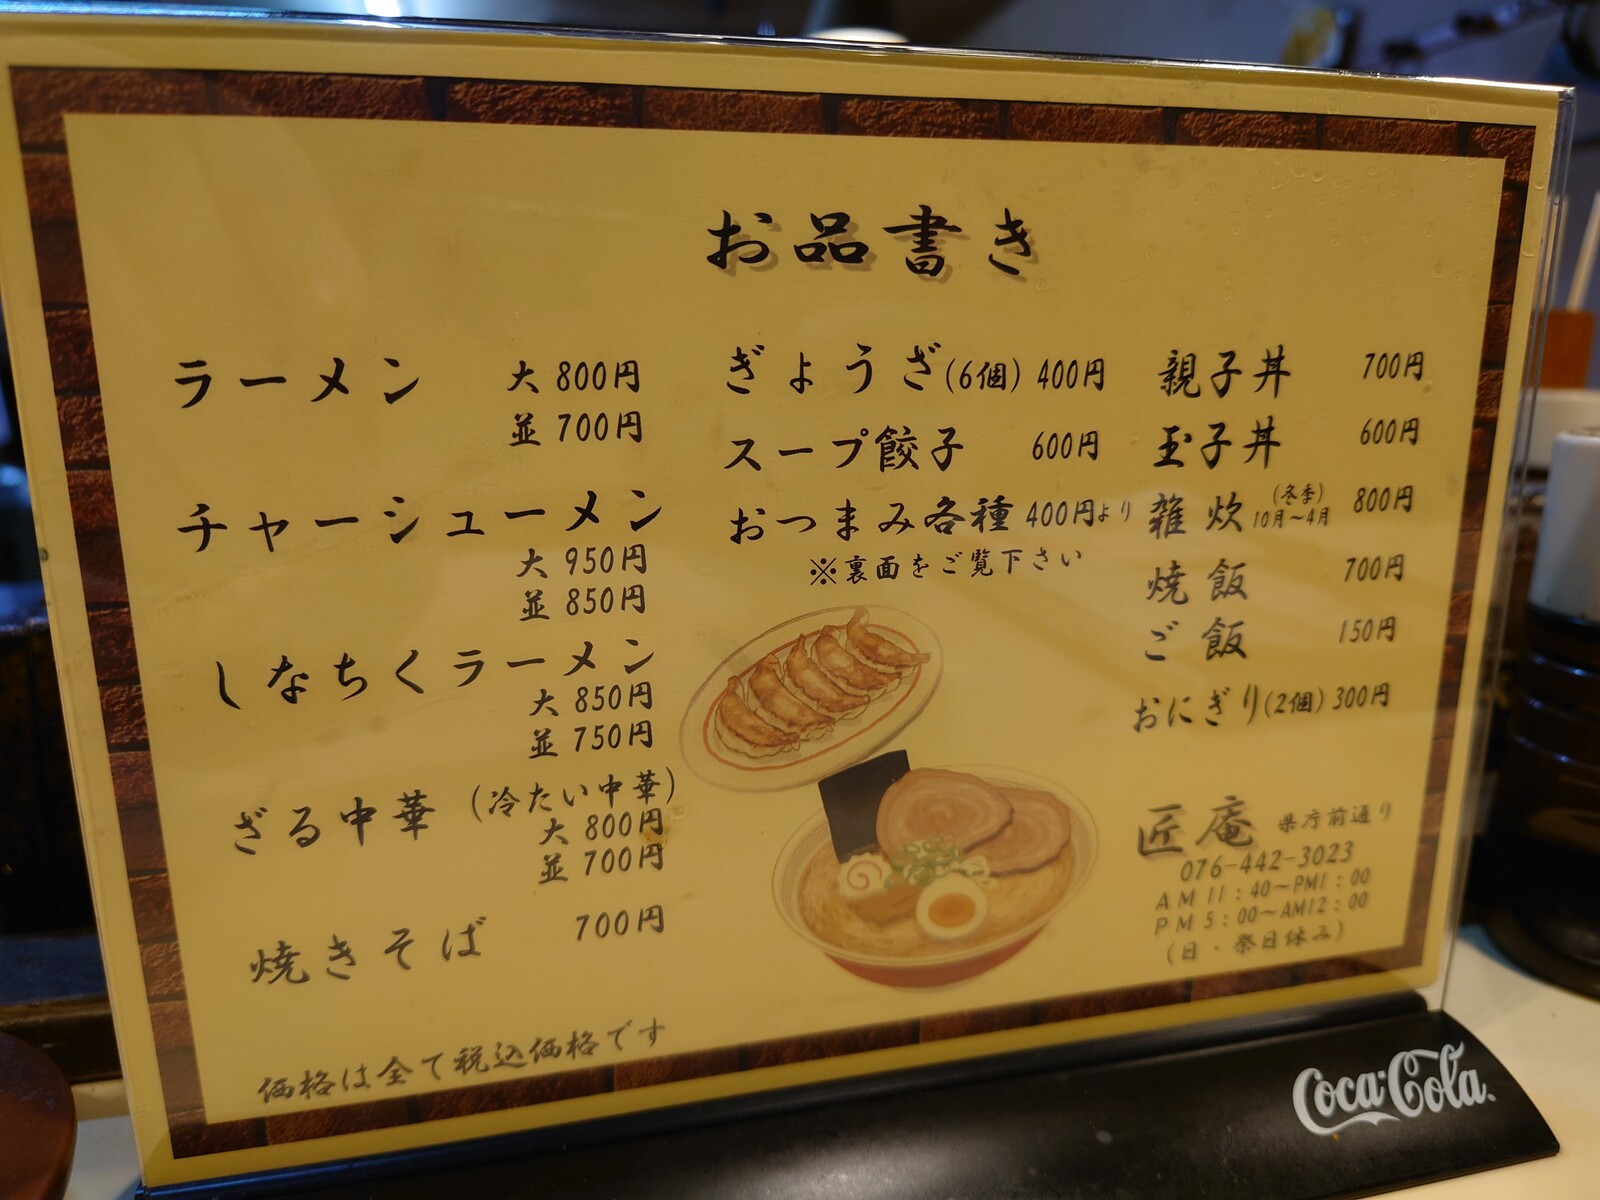 お品書き
ラーメン 大 800円
並 700円
チャーシューメン
大 950円
並 850円
しなちくラーメン
大 850円
並 750円
ざる中華 (冷たい中華)
大 800円
並 700円
焼きそば 700円
価格は全て税込価格です
ぎょうざ(6個) 400円
スープ餃子 600円
おつまみ各種 400円より
※裏面をご覧下さい
親子丼 700円
玉子丼 600円
雑炊 (冬季) 10月～4月 800円
焼飯 700円
ご飯 150円
おにぎり(2個) 300円
匠庵 県庁前通り
076-442-3023
AM11:40～PM1:00
PM5:00～AM12:00
(日・祭日休み)
Coca-Cola